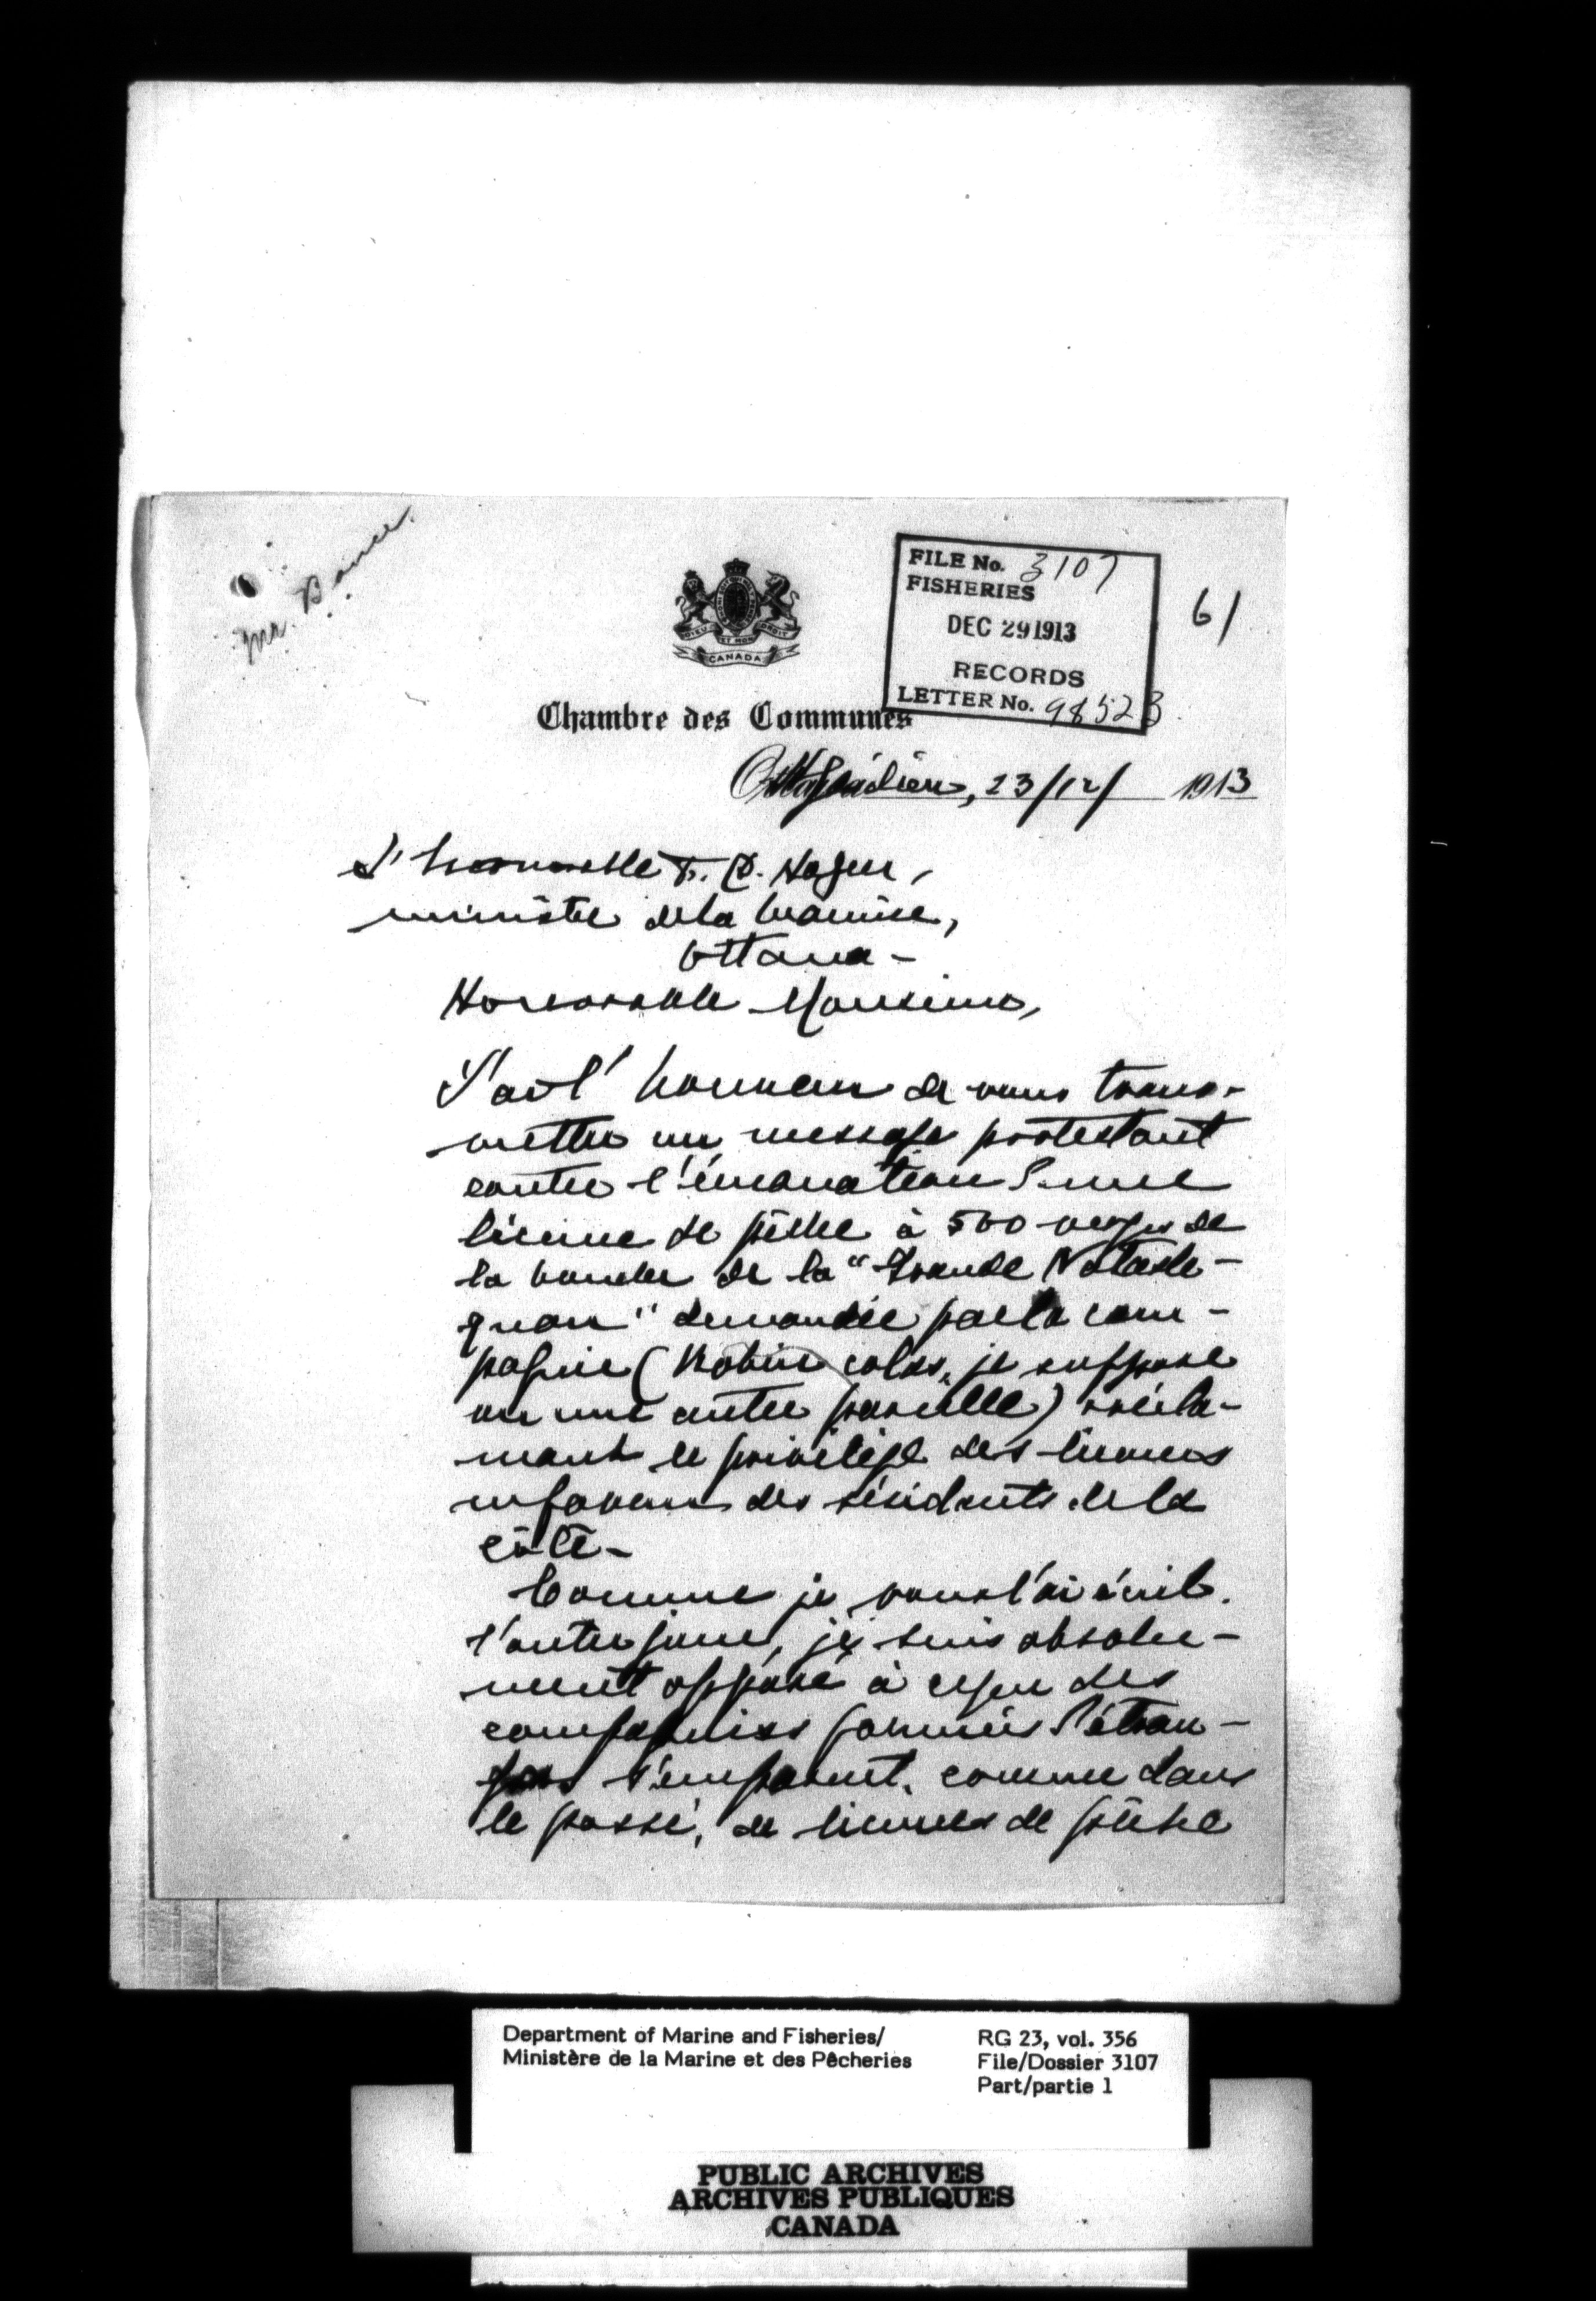 Mr. Bance.
FILE No. 3107
FISHERIES
DEC 29 1913
RECORDS
LETTER No. 98523
61
DIEU ET MON DROIT
CANADA
Chambre des Communes
23/12/ 1913
L'honorable Hazen,
ministre de la marine,
Ottawa -
Honorable Monsieur,
J'ai l'honneur de vous trans-
mettre un message protestant
contre l'émanation d'une
licence de pêche à 500 verges de
la bouche de la "Grande Natash-
quan" demandée par la com-
pagnie (Robin je suppose
ou une autre pareille) récla-
mant le privilège des licences
en faveur des résidents de la
côte -
Comme je vous l'ai écrit
l'autre jour, je suis absolu-
ment opposé à ce que des
compagnies formées d'étran-
gers s'emparent, comme dans
le passé, de licences de pêche
Department of Marine and Fisheries/
Ministère de la Marine et des Pêcheries
RG 23, vol. 356
File/Dossier 3107
Part/partie 1
PUBLIC ARCHIVES
ARCHIVES PUBLIQUES
CANADA